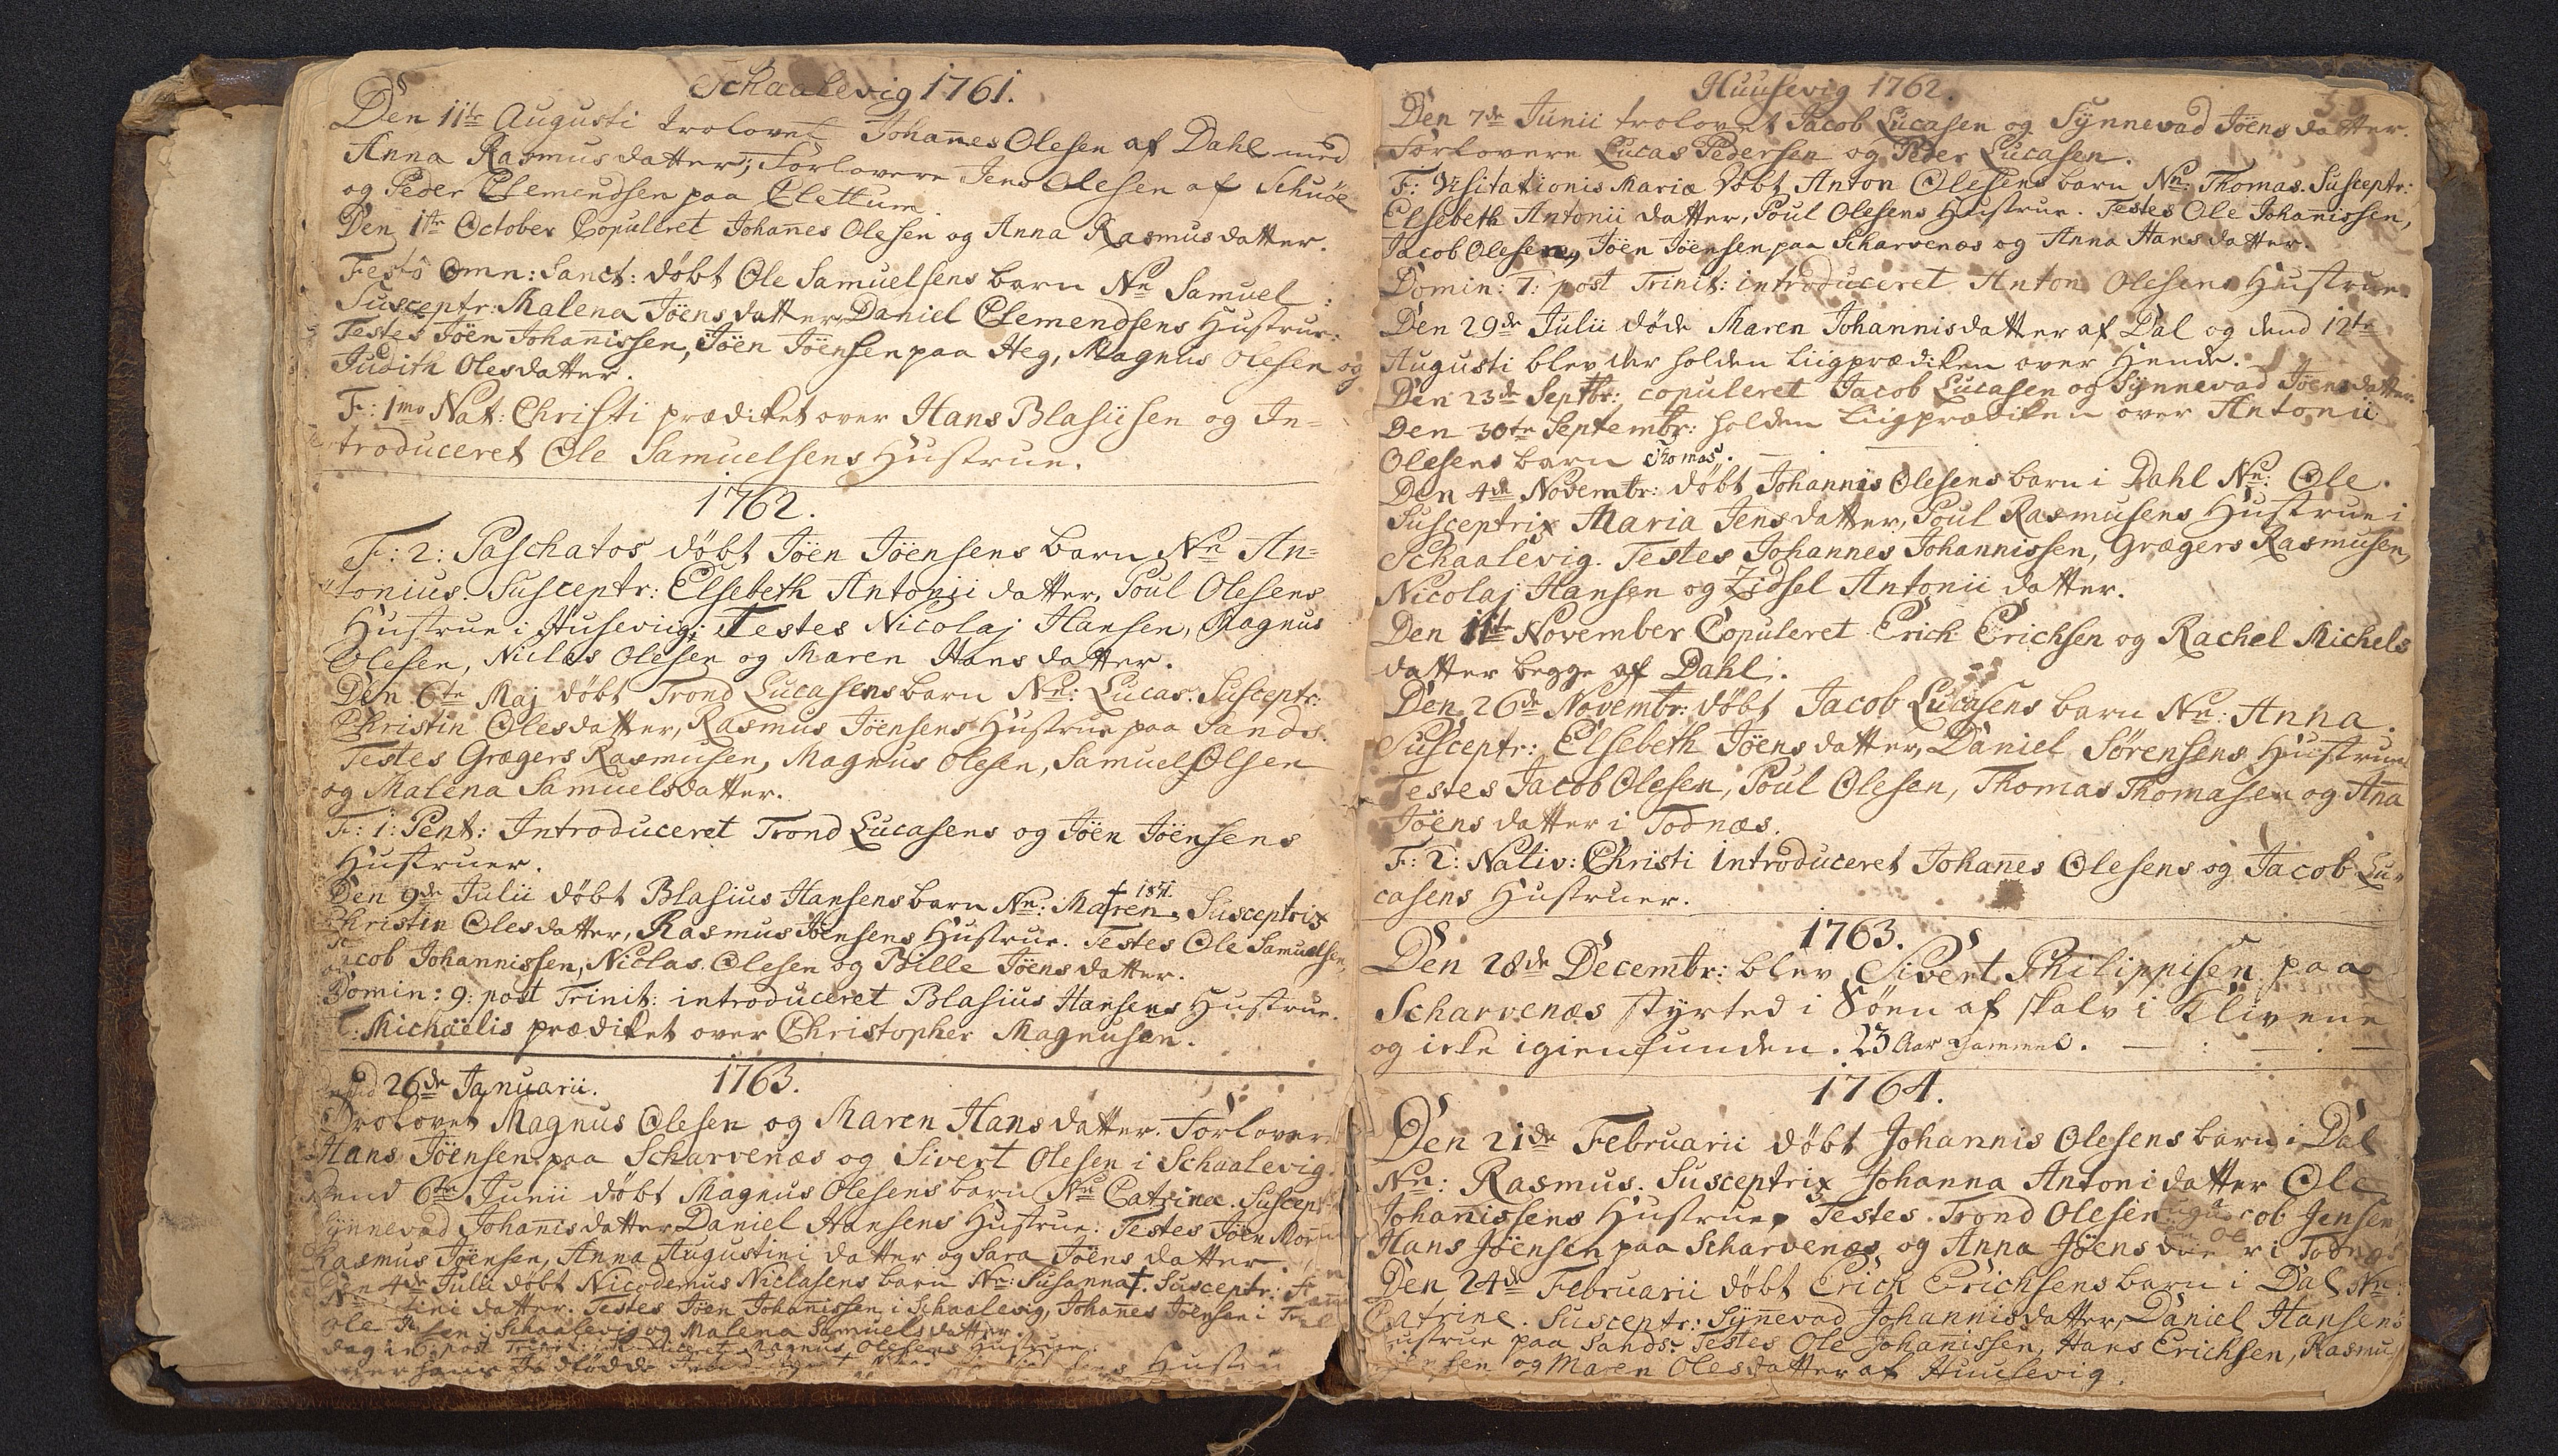 Schaalevig 1761.
Den 11te Augusti trolovet Johanes Olesen af Dahl med
Anna Rasmusdatter; Forlovere Jens Olesen af Schuöe
og Peder Clemendsen paa Clettum.
Den 1te October Copulleret Johanes Olesen og Anna Rasmusdatter.
Festo Omn: Sanct: döbt Ole Samuelsens barn Nne Samuel:
Susceptr: Malena Jöensdatter, Daniel Clemendsens Hustrue:
Testes Jöen Johanissen, Jöen Jöensen paa Heg, Magnus Olesen og
Judith Olesdatter.
F: 1mo Nat: Christi prædiket over Hans Blasiisen og In=
troduceret Ole Samuelsens Hustrue.
1762.
F: 2: Paschatos döbt Jöen Jöensens barn Nne An=
tonius. Susceptr: Elsebeth Antonii datter, Poul Olesens
Hustrue i Husevig; Testes Nicolaj Hansen, Magnus
Olesen, Niclas Olesen og Maren Hansdatter.
Den 6te Maj döbt Trond Lucasens barn Nne: Lucas. Susceptr:
Christin Olesdatter, Rasmus Jöensens Hustrue paa Sande.
Testes Grægers Rasmusen, Magnus Olesen, Samuel Olsen
og Malena Samuelsdatter.
F: 1: Pent: Introduceret Trond Lucasens og Jöen Jöensens
Hustruer.
Den 9de Julii döbt Blasius Hansens barn Nne: Maren † 1841. Susceptrix
Christin Olesdatter, Rasmus Jöensens Hustrue. Testes Ole Samuelsen,
Jacob Johannissen, Niclas Olesen og Bille Jöensdatter.
Domin: 9: post Trinit: introduceret Blasius Hansens Hustrue.
F: Michaëlis prædiket over Christopher Magnusen.
1763.
Dend 26de Januarii.
Trolovet Magnus Olesen og Maren Hansdatter. Forlovere
Hans Jöensen paa Scharvenæs og Sivert Olesen i Schaalevig.
Dend 6te Junii döbt Magnus Olesens barn Nne Catrina. Suscept
Synnevad Johanisdatter Daniel Hansens Hustrue. Testes Jöen
Rasmus Jöensen, Anna Augustini datter og Sara Jöens datter.
Den 4de Julii döbt Nicodemus Niclasens barn Nne: Susanna †. Susceptr:
datter. Testes Jöen Johanissen i Schaalevig, Johanes Jöensen i
Ole sen i Schaalevig og Malena Samuelsdatter.
dag post Trinit: introduceret Magnus Olesens Hustrue.
Hustru
Huusevig 1762.
Den 7de Junii trolovet Jacob Lucasen og Synnevad Jöensdatter.
Forlovere Lucas Pedersen og Peder Lucasen.
F: Visitationis Mariæ döbt Anton Olesens barn Nne: Thomas. Susceptr:
Elsebeth Antonii datter, Poul Olesens Hustrue. Testes Ole Johanissen,
Jacob Olesen, Jöen Jöensen paa Scharvenæs og Anna Hansdatter.
Domin: 7: post Trinit: introduceret Anton Olesens Hustrue.
Den 29de Julii döde Maren Johannisdatter af Dal og dend 12te
Augusti blev der holden Liigprædiken over Hende.
Den 23de Septbr: copuleret Jacob Lucasen og Synnevad Jöensdatter.
Den 30te Septembr: holden Liigprædiken over Antonii
Olesens barn Thomas.
Den 4de Novembr: döbt Johannis Olesens barn i Dahl Nne: Ole.
Susceptrix Maria Jensdatter, Poul Rasmusens Hustrue i
Schaalevig. Testes Johannes Johannissen, Grægers Rasmusen,
Nicolaj Hansen og Zidsel Antonii datter.
Den 11te November Copuleret Erich Erichsen og Rachel Michels
datter begge af Dahl.
Den 26de Novembr: döbt Jacob Lucasens barn Nne: Anna.
Susceptr: Elsebeth Jöensdatter, Daniel Sörensens Hustrue
Testes Jacob Olesen, Poul Olesen, Thomas Thomasen og Ana
Jöens datter i Todnæs.
F: 2: Nativ: Christi introduceret Johanes Olesens og Jacob Lu=
casens Hustruer.
1763.
Den 28de Decembr: blev Sivert Philippisen paa
Scharvenæs styrted i Söen af skalv i Klivene
og icke igienfunden. 23 Aar gammel.
1764.
Den 21de Februarii döbt Johannis Olesens barn i Dal
Nne: Rasmus. Susceptrix Johanna Antonidatter Ole
Johanissens Hustrue, Testes. Trond Olesen cob Jensen,
Hans Jöensen paa Scharvenæs og Anna Jöensd r i Todnæs
Den 24de Februarii döbt Erich Erichsens barn i Dal Nne:
Catrine. Susceptr: Synevad Johannisdatter, Daniel Hansens
Hustrue paa Sande. Testes Ole Johanissen, Hans Erichsen, Rasmu
sen og Maren Olesdatter af Huusevig.